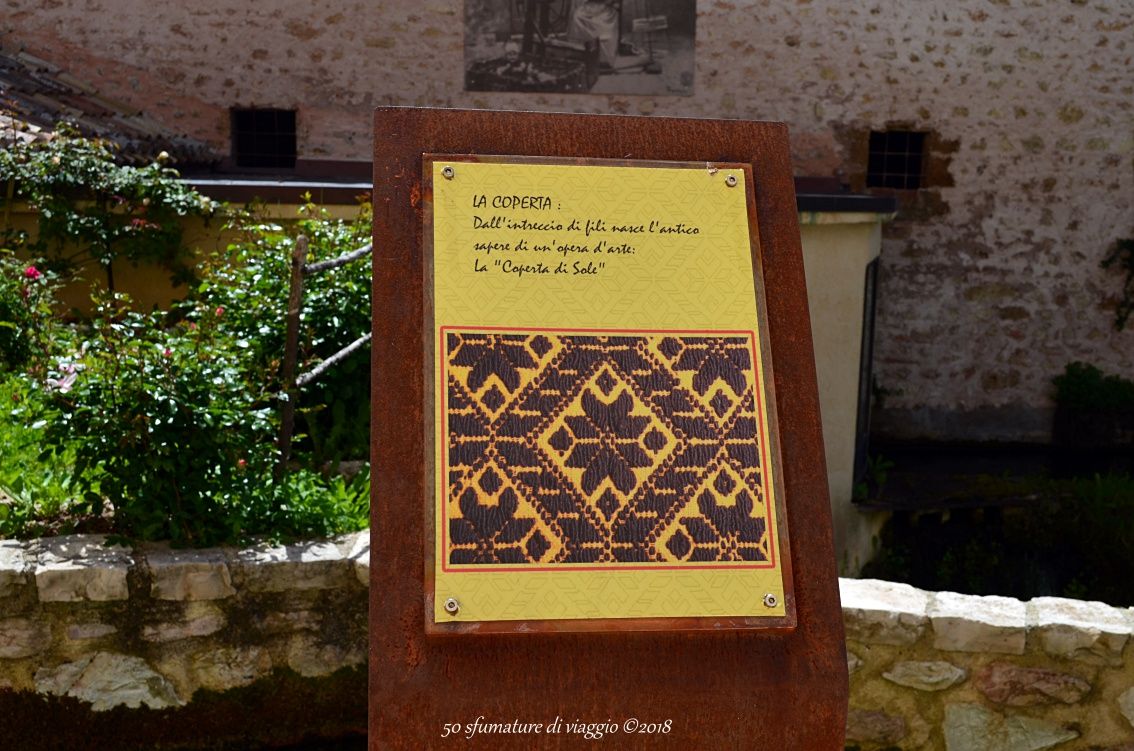 LA COPERTA :
Dall'intreccio di fili nasce l'antico
sapere di un'opera d'arte:
La "Coperta di Sole"
50 sfumature di viaggio ©2018